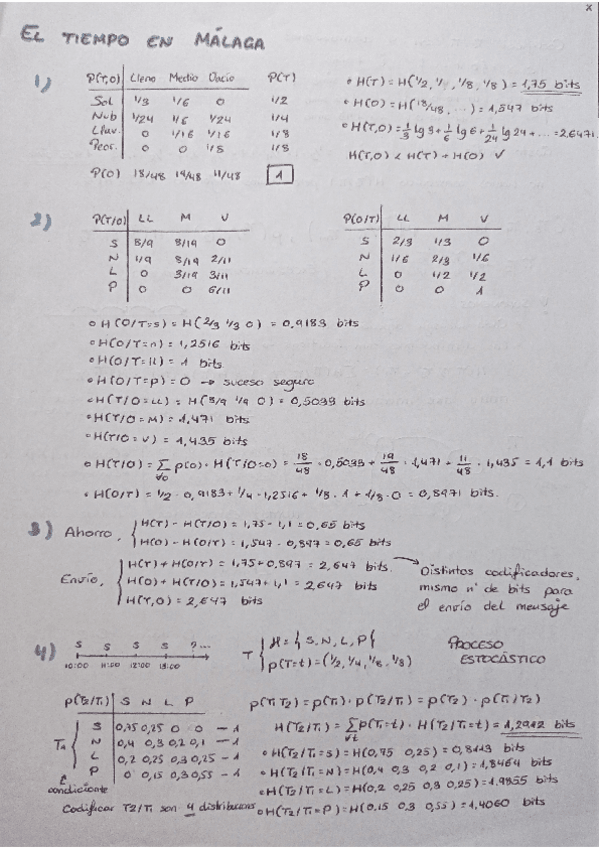 x
EL TIEMPO EN MÁLAGA
1) P(T,O) Lleno Medio Vacío P(T)
Sol 1/3 1/6 0 1/2
Nub 1/24 1/6 1/24 1/4
Lluv. 0 1/16 1/16 1/8
Peor. 0 0 1/8 1/8
P(O) 18/48 19/48 11/48 1
∘ H(T) = H(1/2, 1/4, 1/8, 1/8) = 1,75 bits
∘ H(O) = H(18/48, ...) = 1,547 bits
∘ H(T,O) = 1/3 lg 3 + 1/6 lg 6 + 1/24 lg 24 + ... = 2,6471
H(T,O) < H(T) + H(O) √
2) P(T/O) LL M V
S 8/9 8/19 0
N 1/9 8/19 2/11
L 0 3/19 3/11
P 0 0 6/11
P(O/T) LL M V
S 2/3 1/3 0
N 1/6 2/3 1/6
L 0 1/2 1/2
P 0 0 1
∘ H(O/T=s) = H(2/3 1/3 0) = 0,9183 bits
∘ H(O/T=n) = 1,2516 bits
∘ H(O/T=ll) = 1 bits
∘ H(O/T=p) = 0 → suceso seguro
∘ H(T/O=LL) = H(8/9 1/9 0) = 0,5033 bits
∘ H(T/O=M) = 1,471 bits
∘ H(T/O=V) = 1,435 bits
∘ H(T/O) = ∑ p(o) · H(T/O=o) = 18/48 · 0,5033 + 19/48 · 1,471 + 11/48 · 1,435 = 1,1 bits
∀o
∘ H(O/T) = 1/2 · 0,9183 + 1/4 · 1,2516 + 1/8 · 1 + 1/8 · 0 = 0,8971 bits.
3) Ahorro, { H(T) - H(T/O) = 1,75 - 1,1 = 0,65 bits
H(O) - H(O/T) = 1,547 - 0,897 = 0,65 bits
Envío, { H(T) + H(O/T) = 1,75 + 0,897 = 2,647 bits.
H(O) + H(T/O) = 1,547 + 1,1 = 2,647 bits
H(T,O) = 2,647 bits
→ Distintos codificadores,
mismo nº de bits para
el envío del mensaje
4) S S S S ?...
10:00 11:00 12:00 13:00
T { X = { S, N, L, P }
p(T=t) = (1/2, 1/4, 1/8, 1/8)
PROCESO
ESTOCÁSTICO
p(T2/T1) S N L P
S 0,75 0,25 0 0 — 1
T1 { N 0,4 0,3 0,2 0,1 — 1
L 0,2 0,25 0,3 0,25 — 1
P 0 0,15 0,3 0,55 — 1
condicionante
Codificar T2/T1 son 4 distribuciones
p(T1 T2) = p(T1) · p(T2/T1) = p(T2) · p(T1/T2)
H(T2/T1) = ∑ p(T1=t) · H(T2/T1=t) = 1,2912 bits
∀t
∘ H(T2/T1=S) = H(0,75 0,25) = 0,8113 bits
∘ H(T2/T1=N) = H(0,4 0,3 0,2 0,1) = 1,8464 bits
∘ H(T2/T1=L) = H(0,2 0,25 0,3 0,25) = 1,9855 bits
∘ H(T2/T1=P) = H(0,15 0,3 0,55) = 1,4060 bits